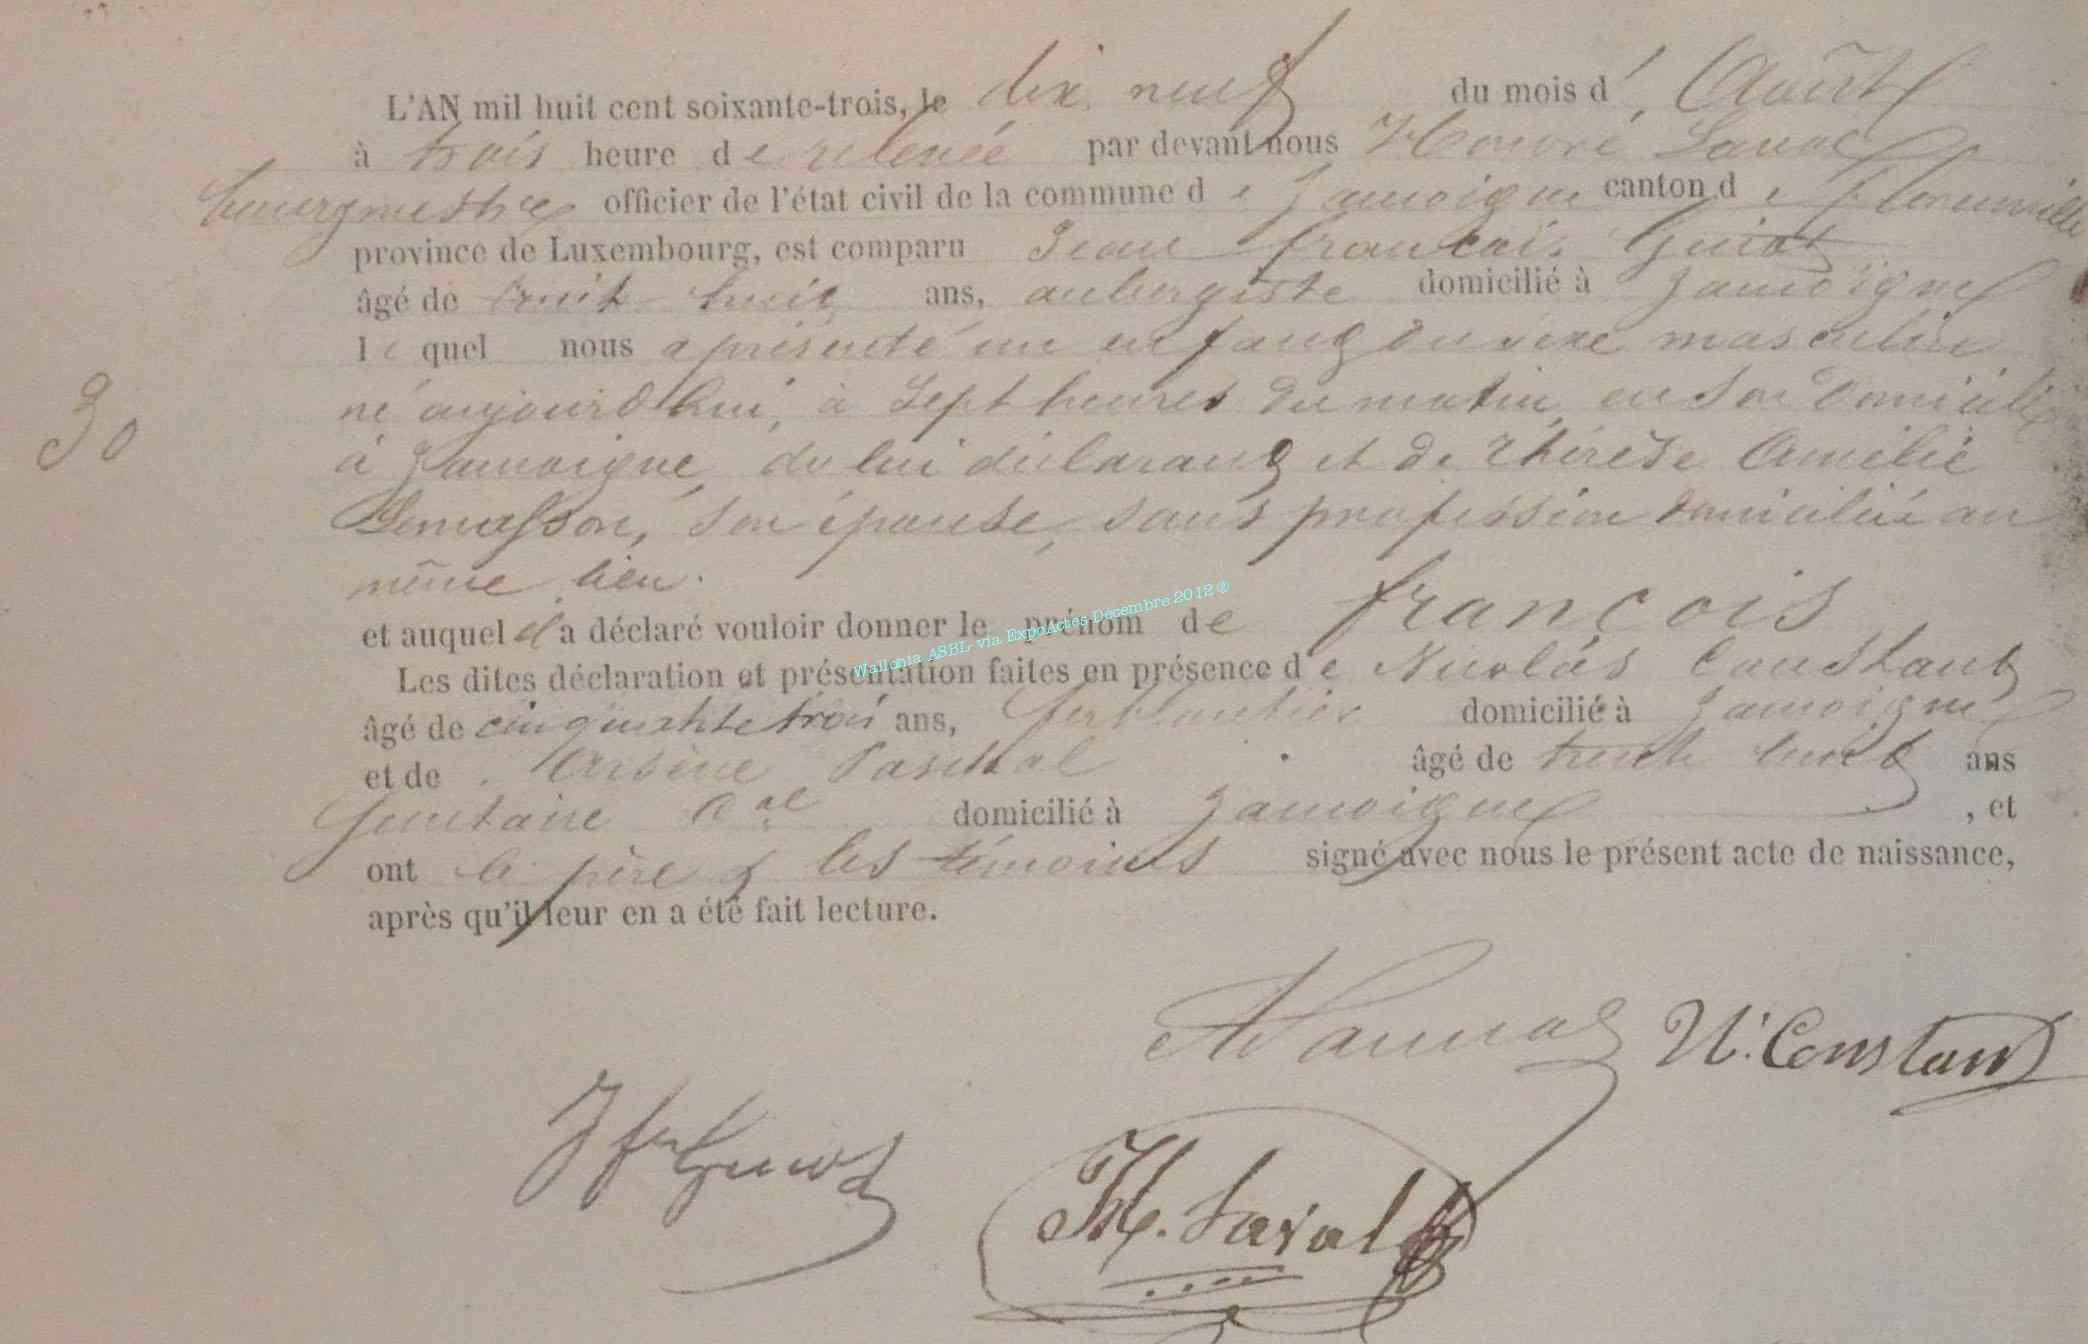 L'AN mil huit cent soixante-trois, le dix neuf du mois d'Août
à trois heure de relevée par devant nous Honoré Laval
bourgmestre officier de l'état civil de la commune de Jamoigne canton de florenville
province de Luxembourg, est comparu Jean françois Guiot
âgé de huit ans, aubergiste domicilié à Jamoigne
lequel nous a présenté un enfant du sexe masculin
né aujourd'hui, à Sept heures du matin, en son domicile
30
à Jamoigne, de lui déclarant et de Thérèse Amélie
son épouse, sans profession domiciliée au
même lieu.
et auquel il a déclaré vouloir donner le prénom de françois
Wallonia ASBL via ExpoActes Décembre 2012 ®
Les dites déclaration et présentation faites en présence de Nicolas Constant
âgé de cinquante trois ans, ferblantier domicilié à Jamoigne
et de Arsène Paschal âgé de trente huit ans
domicilié à Jamoigne, et
ont le père & les témoins signé avec nous le présent acte de naissance,
après qu'il leur en a été fait lecture.
N. Constant
H. Laval